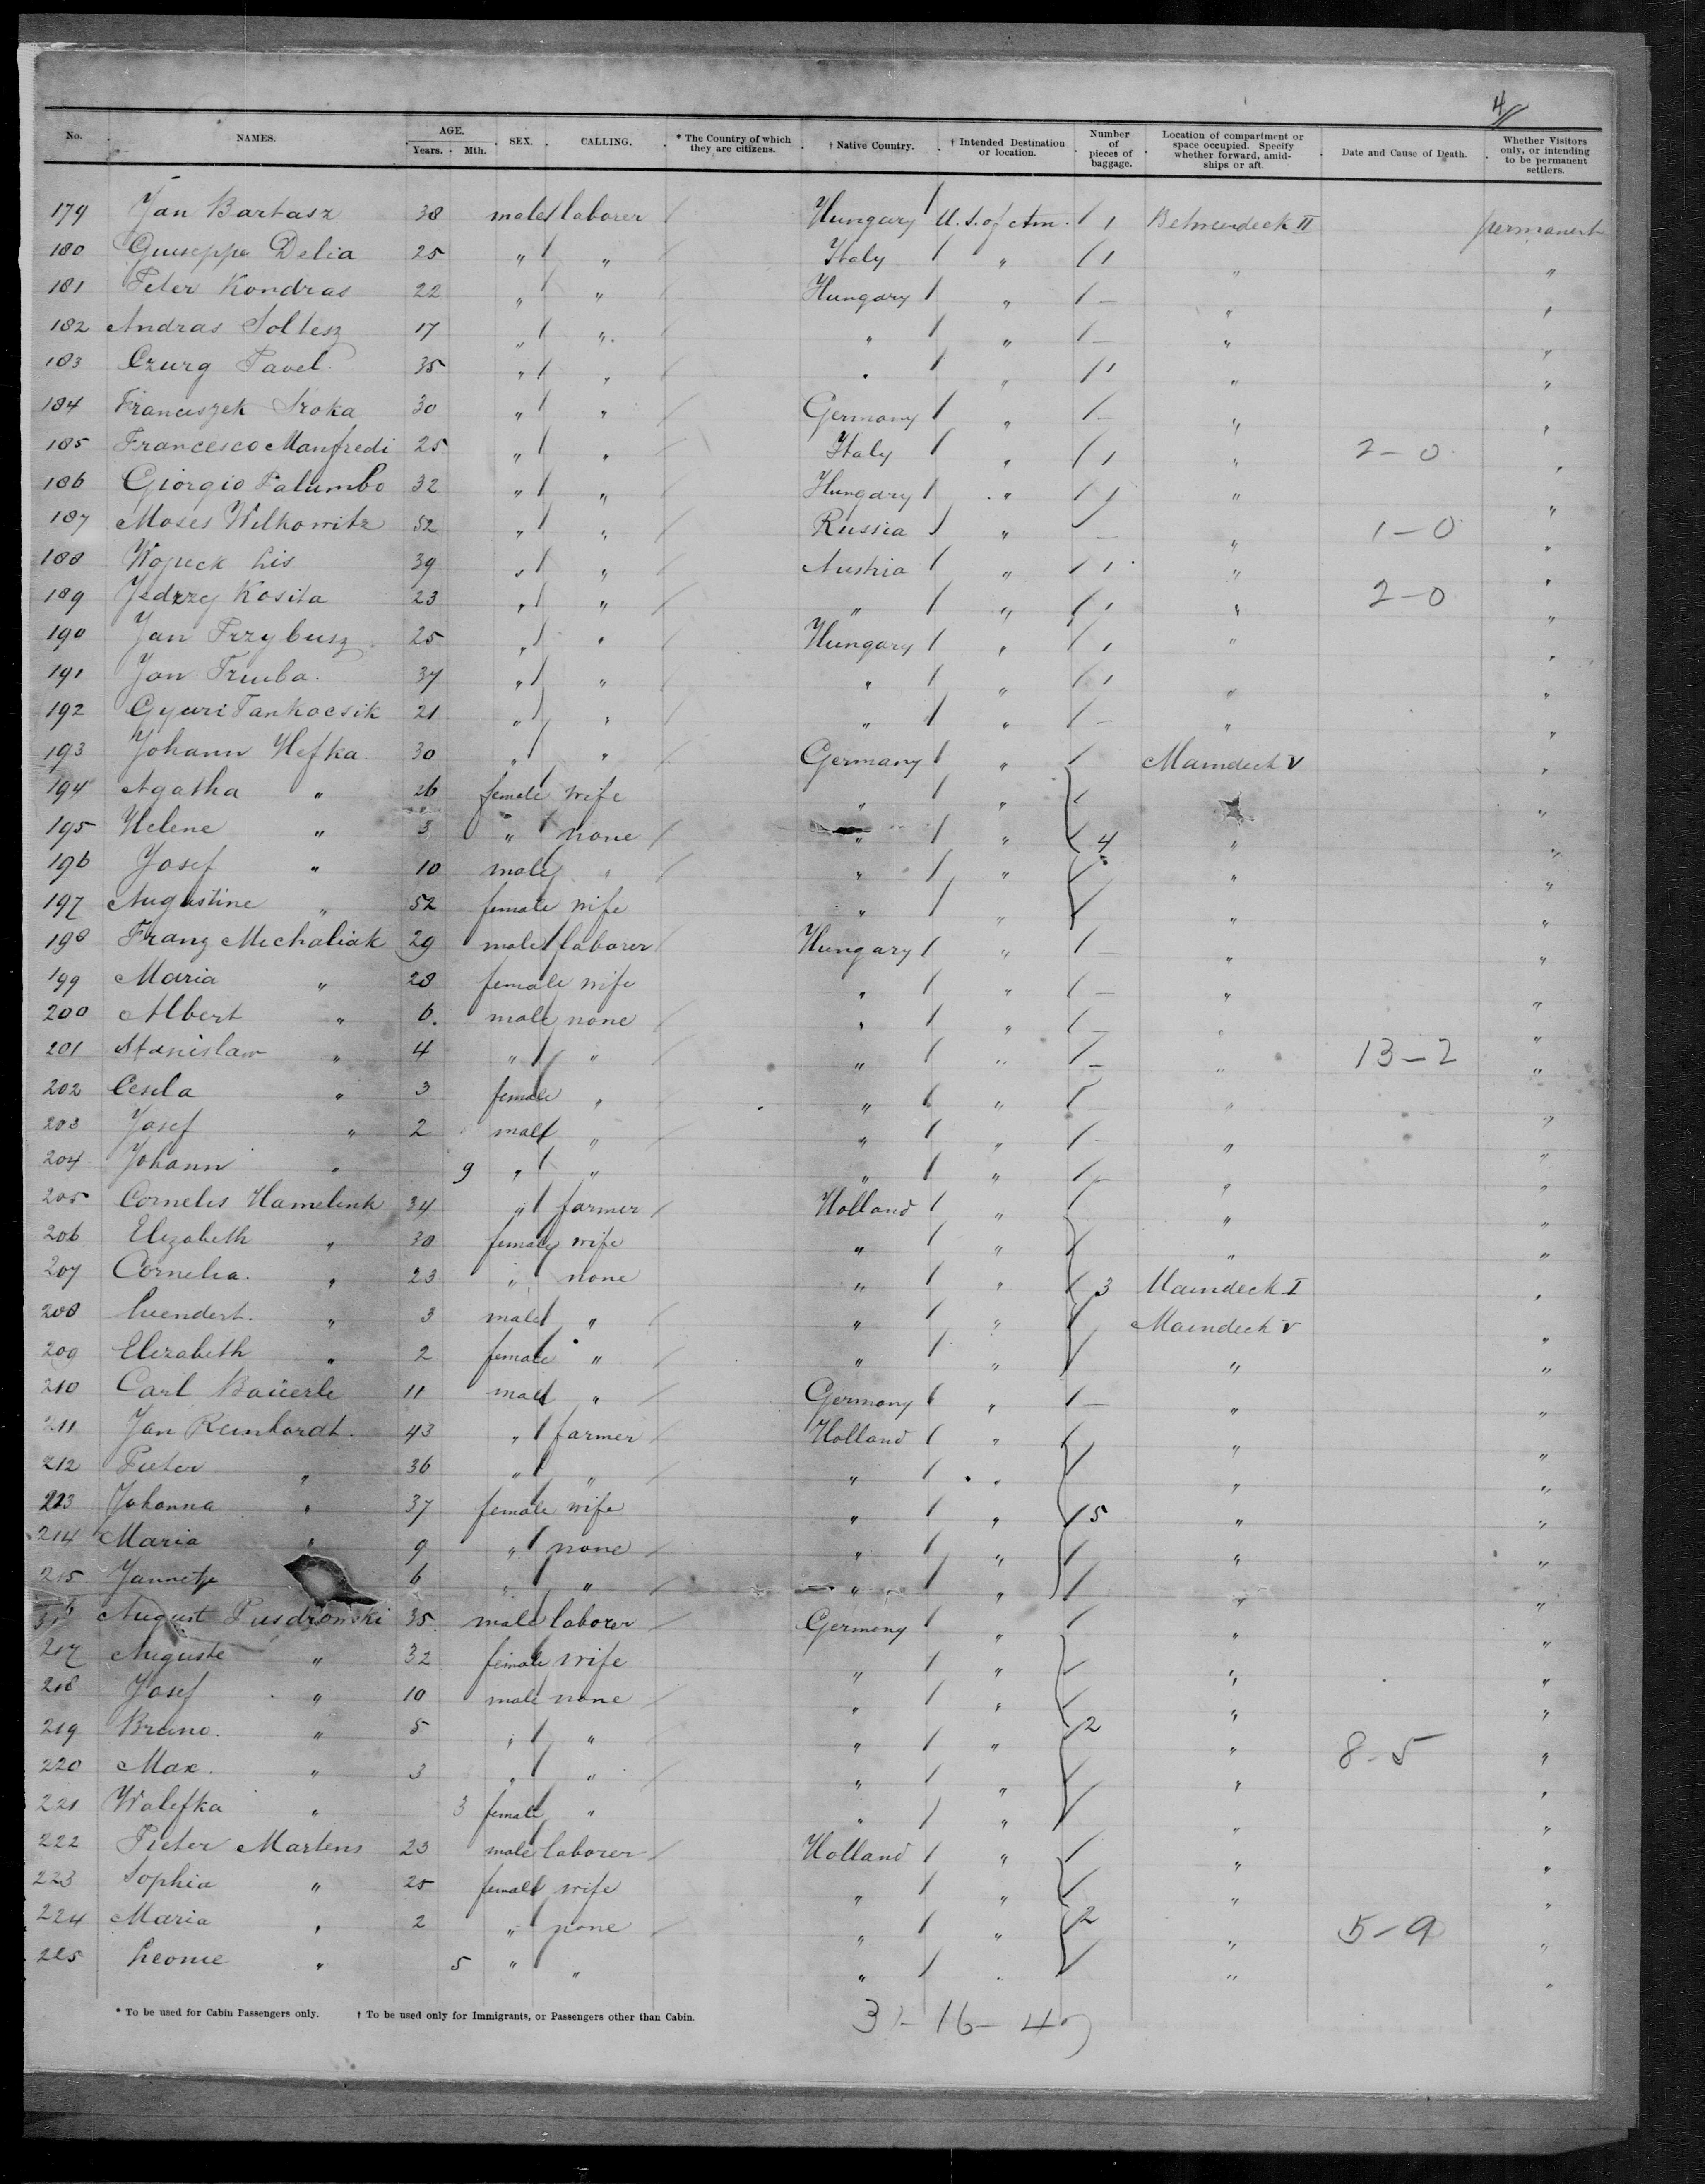 4
No. NAMES. AGE. Years. Mth. SEX. CALLING. * The Country of which they are citizens. † Native Country. † Intended Destination or location. Number of pieces of baggage. Location of compartment or space occupied. Specify whether forward, amidships or aft. Date and Cause of Death. Whether Visitors only, or intending to be permanent settlers.
179 Jan Bartasz 38 male laborer Hungary U.S. of Am. 1 Betweendeck II permanent
180 Guiseppe Delia 25 " " Italy " 1 " "
181 Peter Kondras 22 " " Hungary " — " "
182 Andras Soltesz 17 " " " " — " "
183 Czurg Pavel 35 " " " " 1 " "
184 Franciszek Sroka 30 " " Germany " — " "
185 Francesco Manfredi 25 " " Italy " 1 " 2-0 "
186 Giorgio Palumbo 32 " " Hungary " 1 " "
187 Moses Wilkowitz 52 " " Russia " — " 1-0 "
188 Wojieck Lis 39 " " Austria " 1 " "
189 Jedrzej Kosita 23 " " " " 1 " 2-0 "
190 Jan Przybusz 25 " " Hungary " 1 " "
191 Jan Truba 37 " " " " 1 " "
192 Gyuri Tankocsik 21 " " " " — " "
193 Johann Hefka 30 " " Germany " Maindeck V "
194 Agatha " 26 female wife " " "
195 Helene " 3 " none " " 4 " "
196 Josef " 10 male " " " " "
197 Augustine " 52 female wife " " " "
198 Franz Michaliak 29 male laborer Hungary " — " "
199 Maria " 28 female wife " " — " "
200 Albert " 6 male none " " — " "
201 Stanislaw " 4 " " " " — " 13-2 "
202 Cesila " 3 female " " " — " "
203 Josef " 2 male " " " — " "
204 Johann " 9 " " " " — " "
205 Cornelis Hamelink 34 " farmer Holland " " "
206 Elizabeth " 30 female wife " " " "
207 Cornelia " 23 " none " " 3 Maindeck I "
208 Leendert " 3 male " " " Maindeck V "
209 Elizabeth " 2 female " " " " "
210 Carl Bäuerle 11 male " Germany " — " "
211 Jan Reinhardt 43 " farmer Holland " " "
212 Pieter " 36 " " " " " "
213 Johanna " 37 female wife " " 5 " "
214 Maria " 9 " none " " " "
215 Jannetje 6 " " " " " "
216 August Pusdrowski 35 male laborer Germany " " "
217 Auguste " 32 female wife " " " "
218 Josef " 10 male none " " " "
219 Bruno " 5 " " " " 2 " 8-5 "
220 Max " 3 " " " " " "
221 Walefka " 3 female " " " " "
222 Pieter Martens 23 male laborer Holland " " "
223 Sophia " 25 female wife " " " "
224 Maria " 2 " none " " 2 " 5-9 "
225 Leonie " 5 " " " " " "
* To be used for Cabin Passengers only. † To be used only for Immigrants, or Passengers other than Cabin.